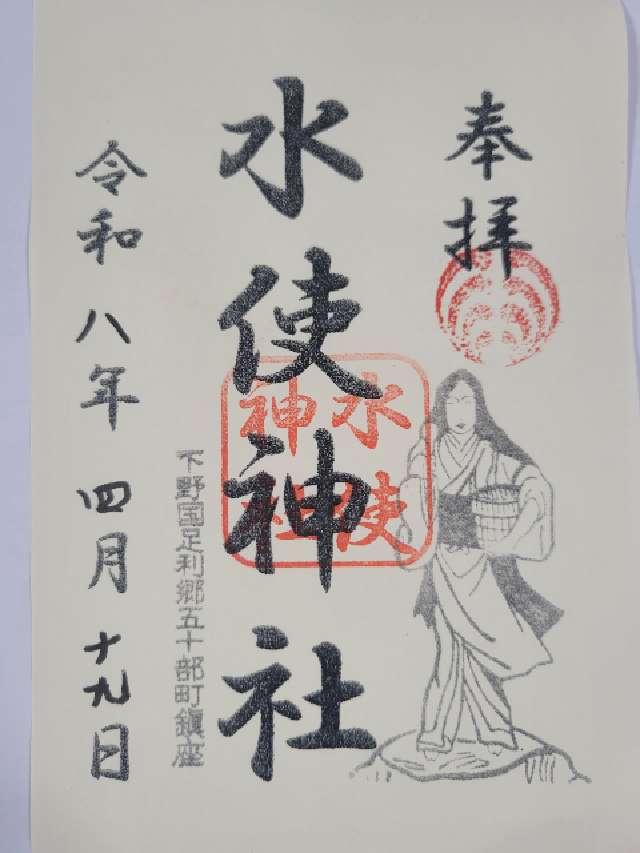 奉拝
水使神社
水使神社
下野国足利郷五十部町鎮座
令和八年四月十九日